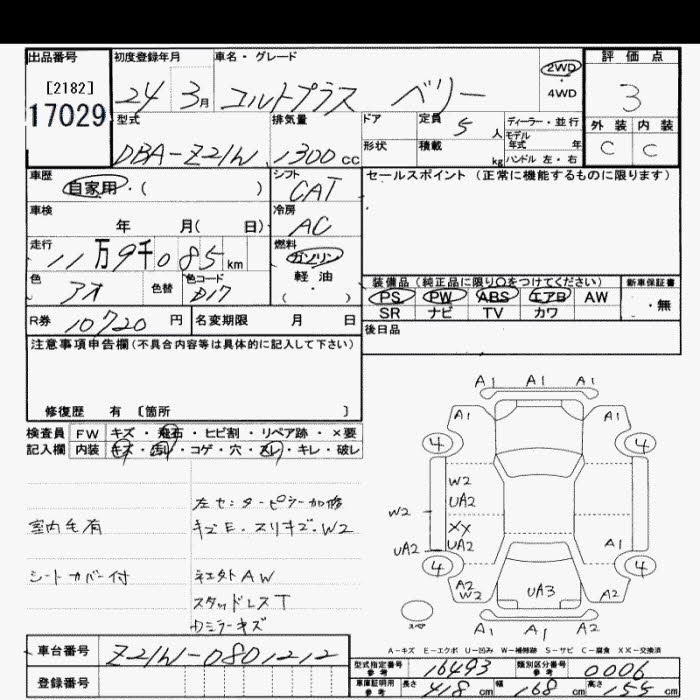 出品番号
[2182]
17029
初度登録年月
24 3月
車名・グレード
コルトプラス ベリー
2WD
4WD
評価点
3
外装 内装
C C
型式
DBA-Z21W
排気量
1300cc
ドア
形状
定員
5人
積載
kg
ディーラー・並行
モデル年式 年
ハンドル 左・右
車歴
自家用・( )
シフト
CAT
セールスポイント (正常に機能するものに限ります)
車検
年 月( 日)
冷房
AC
走行
11万9千085km
燃料
ガソリン
軽油
( )
色
アオ
色替
色コード
D17
装備品 (純正品に限り○をつけてください)
PS PW ABS エアB AW
SR ナビ TV カワ
新車保証書
・無
R券 10720円
名変期限 月 日
後日品
注意事項申告欄(不具合内容等は具体的に記入して下さい)
修復歴 有 〔箇所 〕
検査員 FW キズ・飛石・ヒビ割・リペア跡・×要
記入欄 内装 キズ・汚れ・コゲ・穴・スレ・キレ・破レ
左センターピラー加修
室内毛有
キズE・スリキズ・W2
シートカバー付
社外AW
スタッドレスT
ミラーキズ
A1 A1 A1
A1 A1
4 4
W2
UA2
W2
XX
UA2 UA2
A1
4 4
A2
W2
UA3
A2
スペア
A1 A1 A2
A-キズ E-エクボ U-凹み W-補修跡 S-サビ C-腐食 XX-交換済
車台番号 Z21W-0801212
登録番号
型式指定番号
参考
16493
類別区分番号
参考
0006
車庫証明用
参考
長さ 418cm
幅 168cm
高さ 155cm